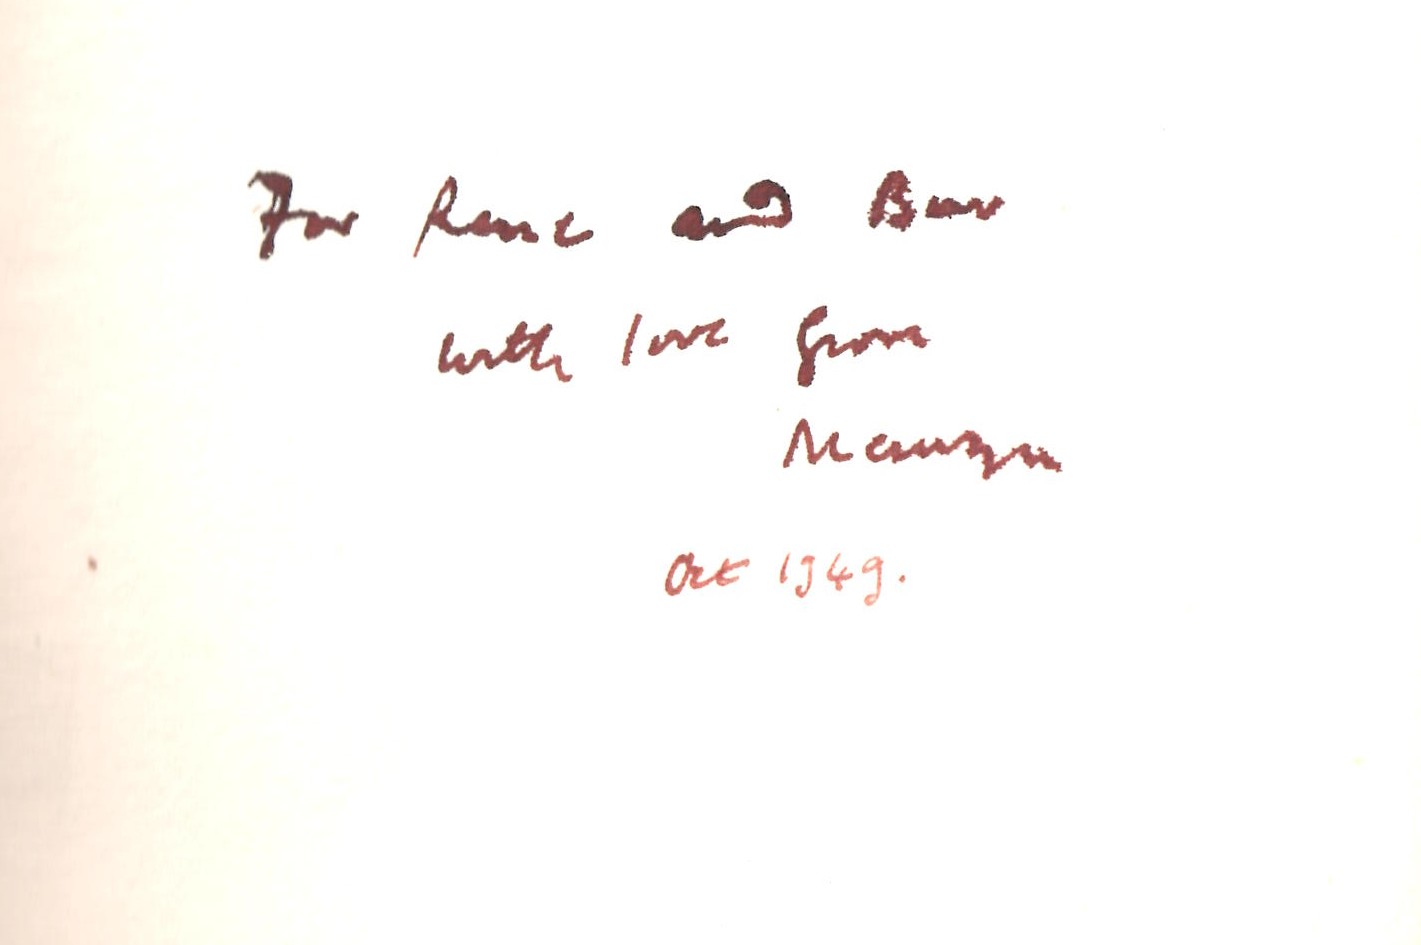 For Rene and
with love from
Oct 1949.